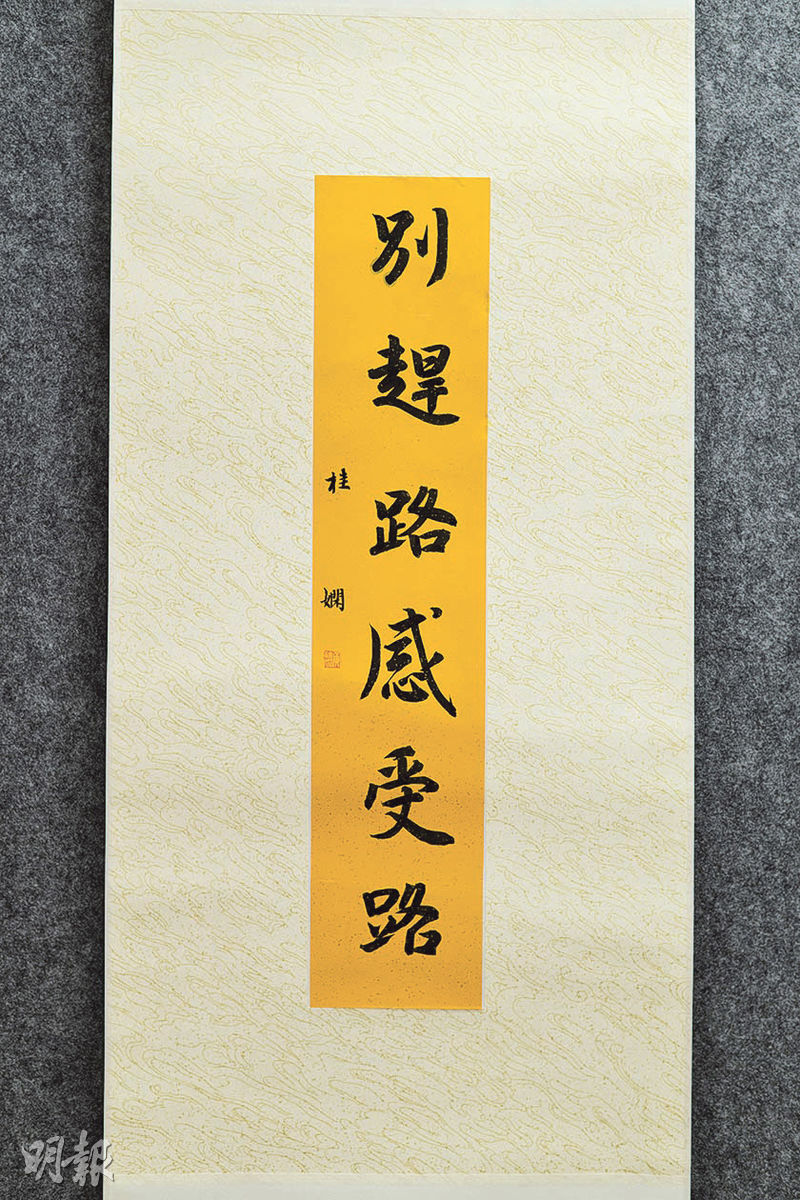 別趕路感受路
桂嫻
明報